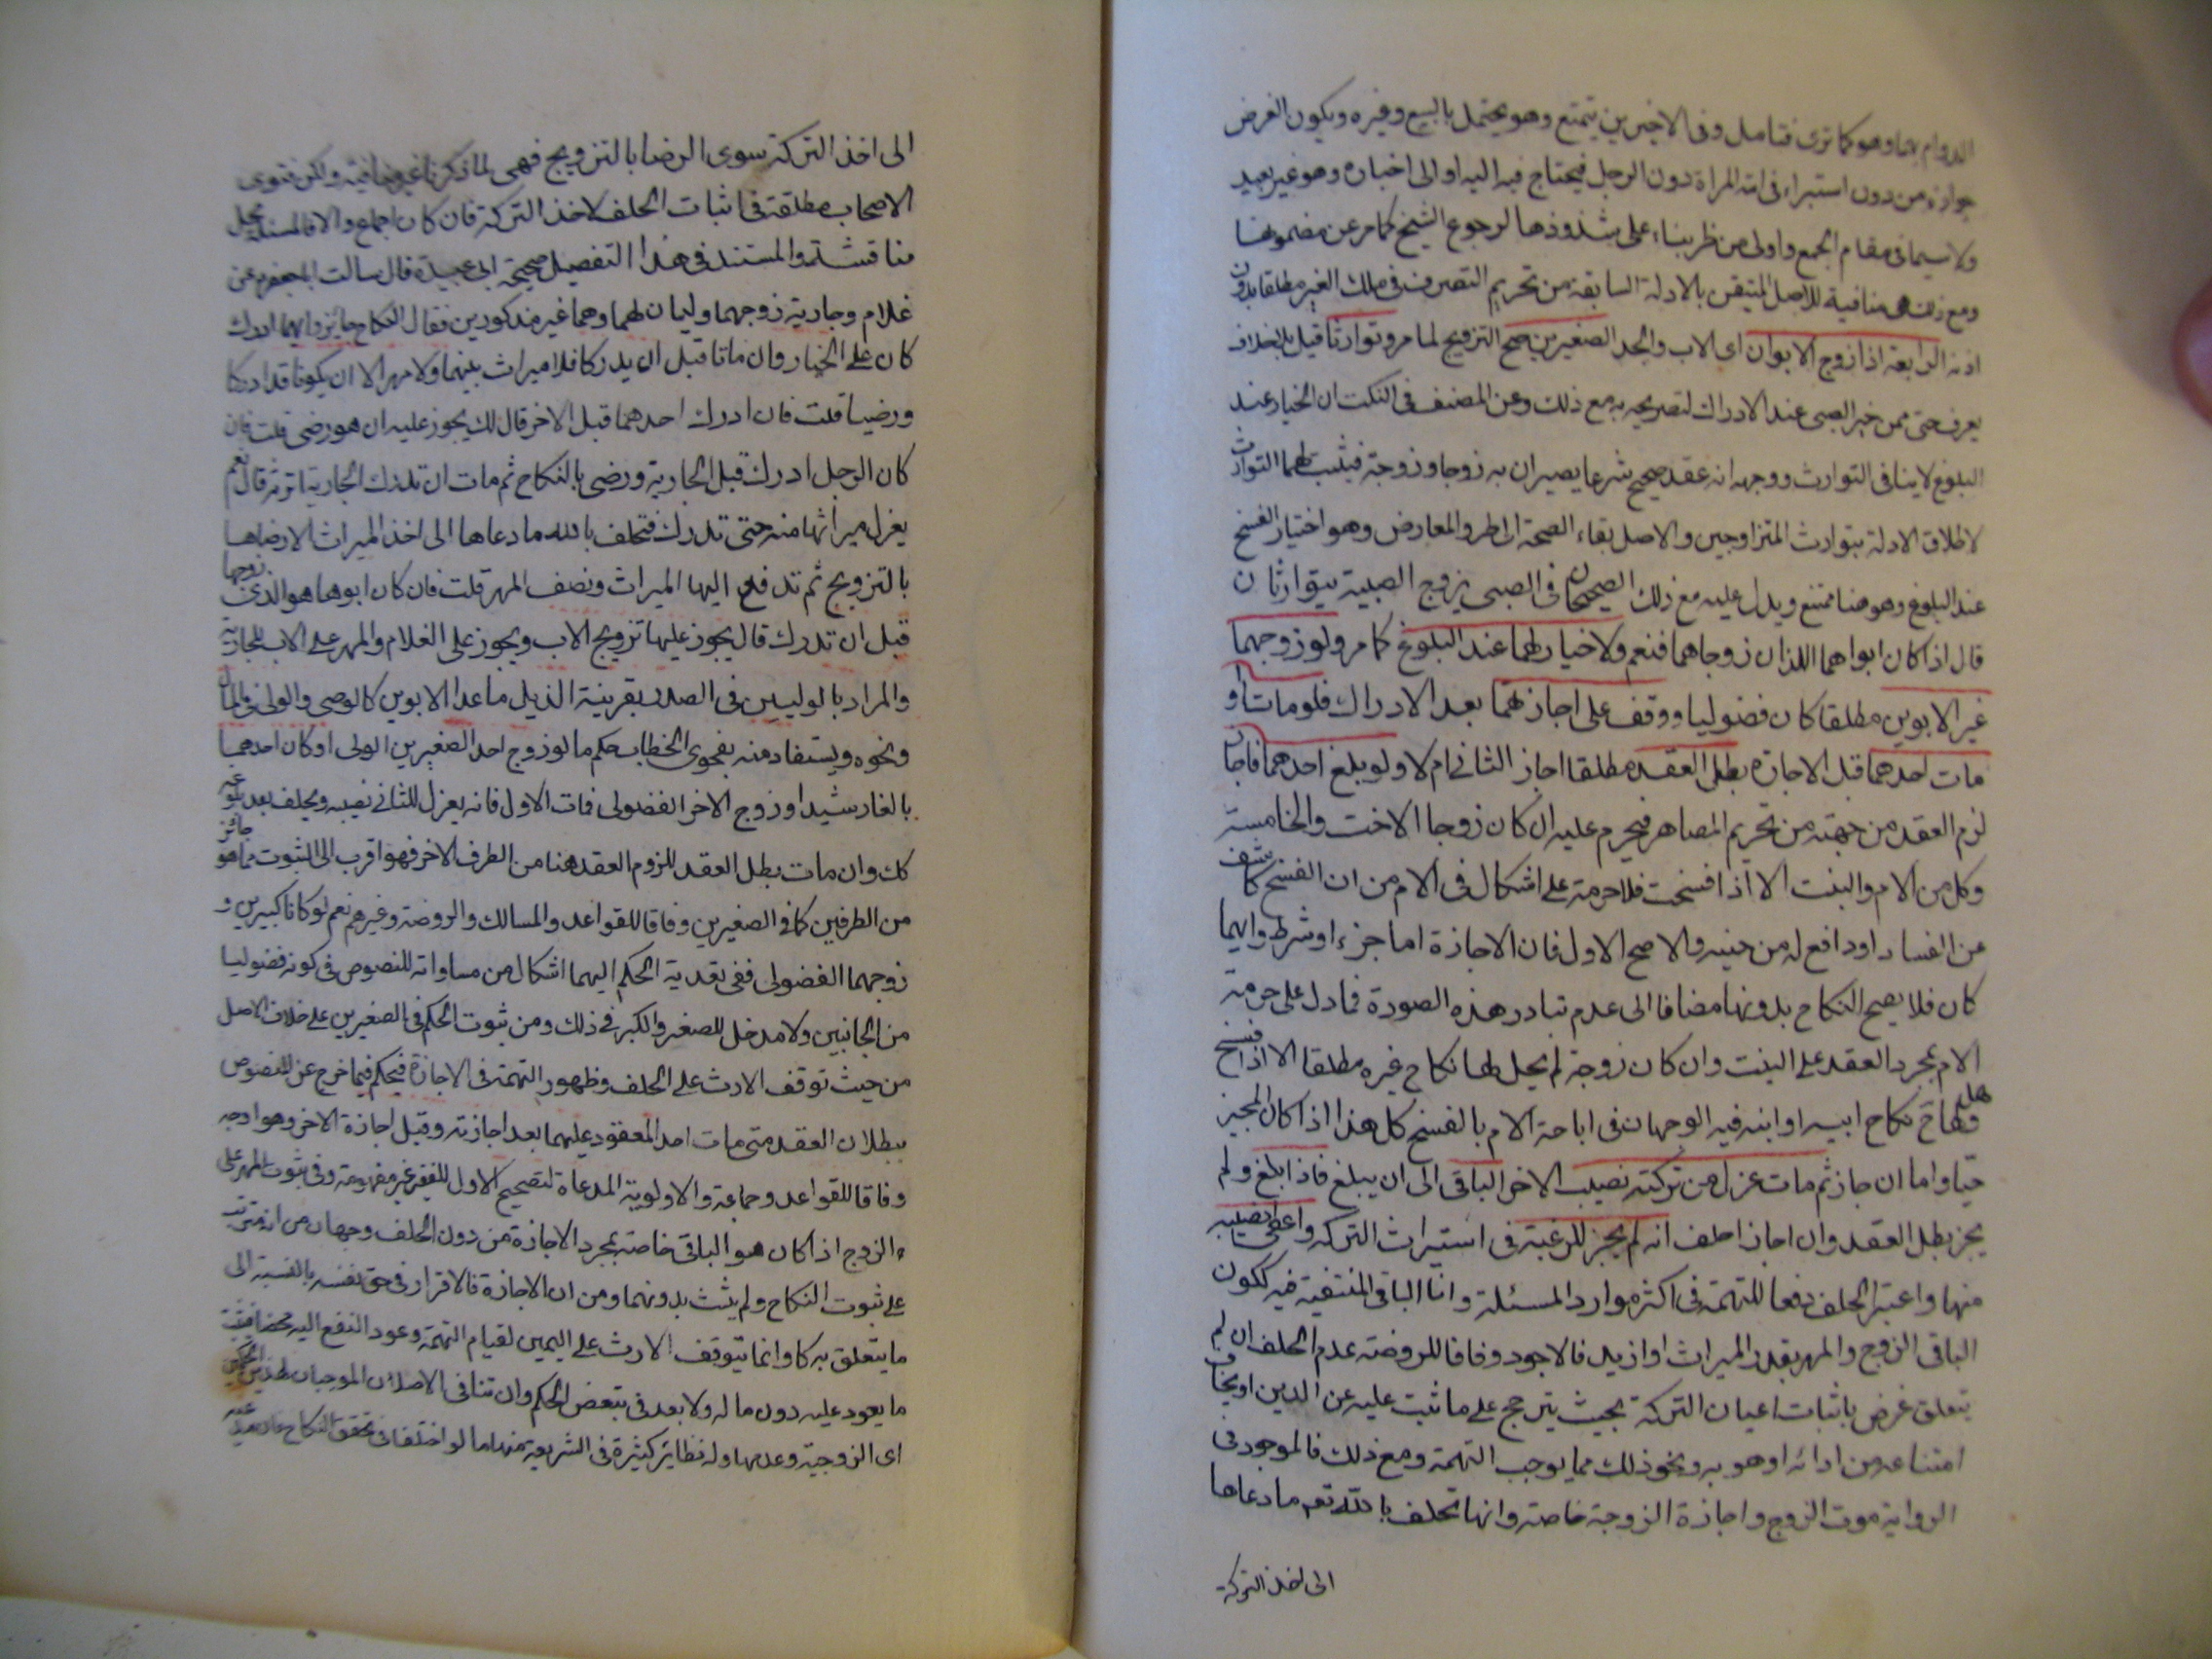 الدوام بها وهو كما ترى فتامل وفى الاخيرين يتمتع وهو يحتمل بالبيع وغيره ويكون الغرض
جوازه من دون استبراء فى امة المراة دون الرجل فيحتاج فيه اليه او الى اخباره وهو غير بعيد
ولا سيما فى مقام الجمع واولى من طرينا على شذوذها لرجوع الشيخ كما مر عن مضمونها
ومع ذلك هى منافية للاصل المتيقن بالادلة السابقة من تحريم التصرف فى ملك الغير مطلقا بدون
اذنه الرابعة اذا زوج الابوان اى الاب والجد الصغيرين صح التزويج لما مر وتوارثا قيل بلا خلاف
يعرف حتى ممن خير الصبى عند الادراك لتصريحه به مع ذلك وعن المصنف فى النكت ان الخيار عند
البلوغ لا ينافى التوارث ووجهه انه عقد صحيح شرعا يصيران به زوجا وزوجة فيثبت لهما التوارث
لاطلاق الادلة بتوارث المتزاوجين والاصل بقاء الصحة الى طرو المعارض وهو اختيار الفسخ
عند البلوغ وهو هنا ممتنع ويدل عليه مع ذلك الصحيحان فى الصبى يزوج الصبية يتوارثان
قال اذا كان ابواهما اللذان زوجاهما فنعم ولا خيار لهما عند البلوغ كما مر ولو زوجهما
غير الابوين مطلقا كان فضوليا ووقف على اجازتهما بعد الادراك فلو ماتا او
مات احدهما قبل الاجازة بطل العقد مطلقا اجاز الثانى ام لا ولو بلغ احدهما فاجاز
لزم العقد من جهته من تحريم المصاهر فيحرم عليه ان كان زوجا الاخت والخامسة
وكل من الام والبنت الا اذا فسخت فلا حرمة على اشكال فى الام من ان الفسخ كاشف
عن الفساد او دافع له من حينه والاصح الاول فان الاجازة اما جزء او شرط وايهما
كان فلا يصح النكاح بدونها مضافا الى عدم تبادر هذه الصورة فما دل على حرمة
الام بمجرد العقد على البنت وان كان زوجة لم يحل لها نكاح غيره مطلقا الا اذا فسخ
وهل لها ح نكاح ابيه او ابنه فيه الوجهان فى اباحة الام بالفسخ كل هذا اذا كان المجيز
حيا واما ان جاز ثم مات عزل من تركته نصيب الاخر الباقى الى ان يبلغ فاذا بلغ ولم
يجز بطل العقد وان اجاز احلف انه لم يجز للرغبة فى استيراث التركه واعطى نصيبه
منها واعتبر الحلف دفعا للتهمة فى اكثر موارد المسئلة واما الباقى المنتفية فيه ككون
الباقى الزوج والمهر بقدر الميراث او ازيد فالاجود وفاقا للروضة عدم الحلف ان لم
يتعلق غرض باثبات اعيان التركة بحيث يترجح على ما ثبت عليه من الدين او يخاف
امتناعه من ادائه او هو به ونحو ذلك مما يوجب التهمة ومع ذلك فالموجود فى
الرواية موت الزوج واجازة الزوجة خاصة وانها تحلف بالله تعه ما دعاها
الى اخذ التركة
الى اخذ التركة سوى الرضا بالتزويج فهى لما ذكرنا غير منافية ولكن فتوى
الاصحاب مطلقة فى اثبات الحلف لاخذ التركة فان كان اجماع والا فالمسئلة محل
مناقشة والمستند فى هذا التفصيل صحيحة ابى عبيدة قال سالت ابا جعفر عن
غلام وجارية زوجهما وليان لهما وهما غير مدركين فقال النكاح جايز وايهما ادرك
كان على الخيار وان ماتا قبل ان يدركا فلا ميراث بينهما ولا مهر الا ان يكونا قد ادركا
ورضيا قلت فان ادرك احدهما قبل الاخر قال لك يجوز عليه ان هو رضى قلت فان
كان الرجل ادرك قبل الجارية ورضى بالنكاح ثم مات ان تدرك الجارية اترثه قال نعم
يعزل ميراثها منه حتى تدرك فتحلف بالله ما دعاها الى اخذ الميراث الا رضاها
بالتزويج ثم تدفع اليها الميراث ونصف المهر قلت فان كان ابوها هو الذى زوجها
قبل ان تدرك قال يجوز عليها تزويج الاب ويجوز على الغلام والمهر على الاب للجارية
والمراد بالوليين فى الصدر بقرينة الذيل ما عدا الابوين كالوصى والولى فى المال
ونحوه ويستفاد منه بفحوى الخطاب حكم ما لو زوج احد الصغيرين الولى او كان احدهما
بالغا رشيدا وزوج الاخر الفضولى فمات الاول فانه يعزل للثانى نصيبه ويحلف بعد بلوغه
كك وان مات بطل العقد للزوم العقد هنا من الطرف الاخر فهو اقرب الى الثبوت مما هو جائز
من الطرفين كما فى الصغيرين وفاقا للقواعد والمسالك والروضة وغيرهم نعم لو كانا كبيرين و
زوجهما الفضولى ففى تعدية الحكم اليهما اشكال من مساواته للنصوص فى كونه فضوليا
من الجانبين ولا مدخل للصغر والكبر فى ذلك ومن ثبوت الحكم فى الصغيرين على خلاف الاصل
من حيث توقف الارث على الحلف وظهور التهمة فى الاجازة فيحكم فيما خرج عن المنصوص
ببطلان العقد متى مات احد المعقود عليهما بعد اجازته وقبل اجازة الاخر وهو اوجه
وفاقا للقواعد وجماعة والاولوية المدعاة لتصحيح الاول للفقير غير مفهومة وفى ثبوت المهر على
الزوج اذا كان هو الباقى خاصة بمجرد الاجازة من دون الحلف وجهان من انه مترتب
على ثبوت النكاح ولم يثبت بدونهما ومن ان الاجازة فالاقرار فى حق نفسه بالنسبة الى
ما يتعلق به كا وانما يتوقف الارث على اليمين لقيام التهمة وعود النفع اليه محضا فيثبت
ما يعود عليه دون ماله ولا بعد فى تبعض الحكم وان تنافى الاصلان الموجبان لهذين الحكمين
اى الزوجية وعدمها وله نظاير كثيرة فى الشريعة منها ما لو اختلفا فى تحقق النكاح